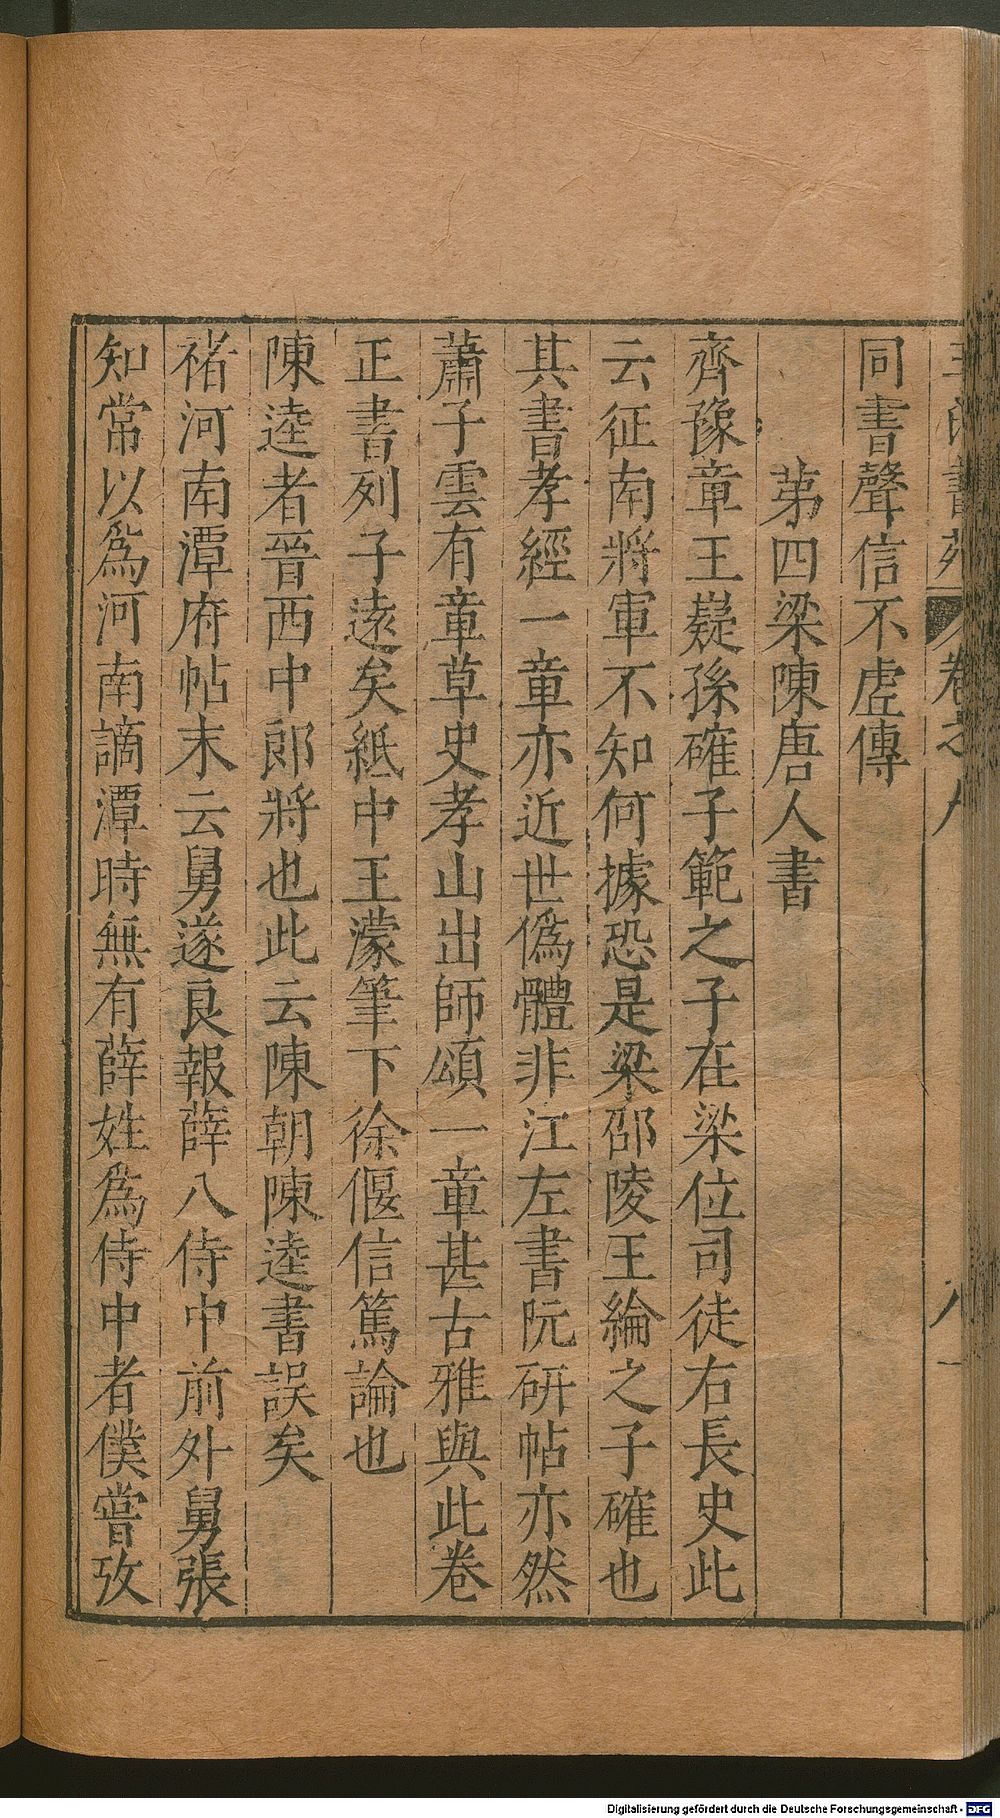 王氏書苑 卷之八 八
同書聲信不虛傳
第四梁陳唐人書
齊豫章王嶷孫確子範之子在梁位司徒右長史此
云征南將軍不知何據恐是梁邵陵王綸之子確也
其書孝經一章亦近世偽體非江左書阮研帖亦然
蕭子雲有章草史孝山出師頌一章甚古雅與此卷
正書列子遠矣紙中王濛筆下徐偃信篤論也
陳逵者晉西中郎將也此云陳朝陳逵書誤矣
禇河南潭府帖末云舅遂良報薛八侍中前外舅張
知常以爲河南謫潭時無有薛姓爲侍中者僕嘗攷
Digitalisierung gefördert durch die Deutsche Forschungsgemeinschaft - DFG